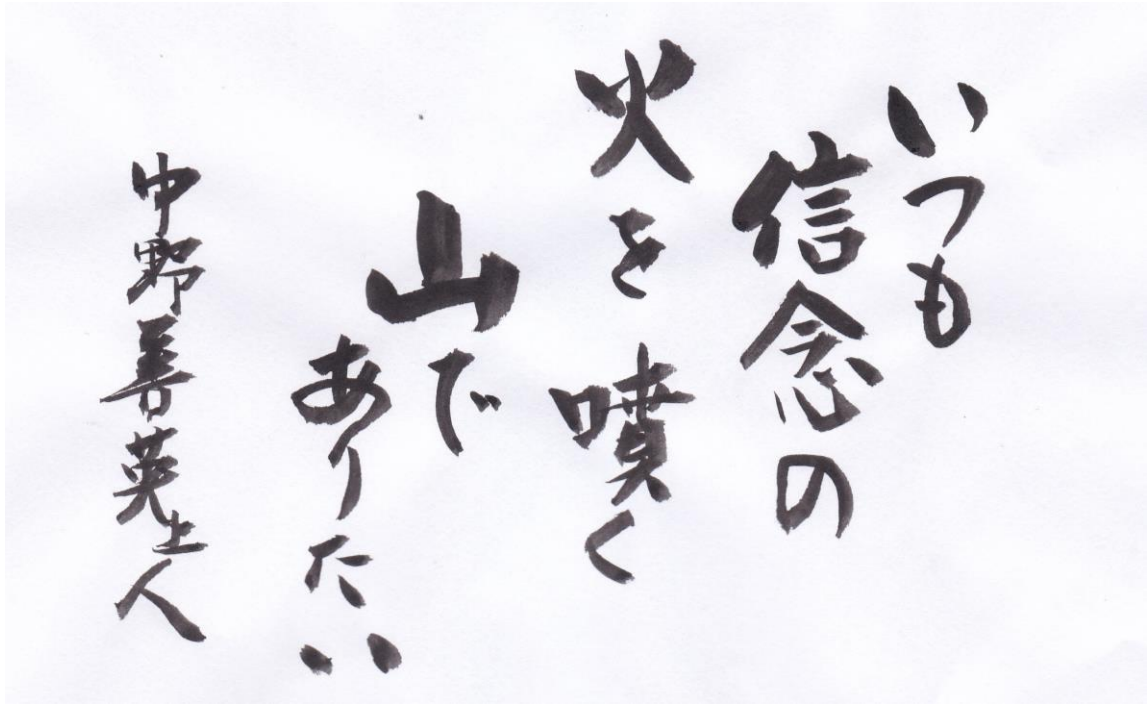 いつも
信念の
火を噴く
山で
ありたい
中野善英上人